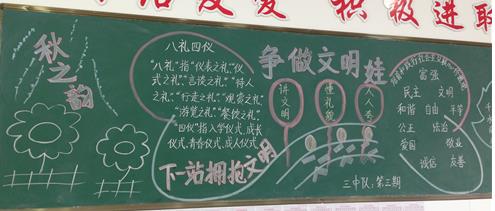 积极进取
秋之韵
八礼四仪
“八礼”指“仪表之礼”“仪
式之礼”“言谈之礼”“待人
之礼”“行走之礼”“观赏之礼”
“游览之礼”“餐饮之礼”
“四仪”指入学仪式，成长
仪式，青春仪式，成人仪式
下一站拥抱文明
争做文明娃
讲文明
懂礼貌
人人夸
富强
民主 文明
和谐 自由 平等
公正 法治
爱国 敬业
诚信 友善
三中队：第三期